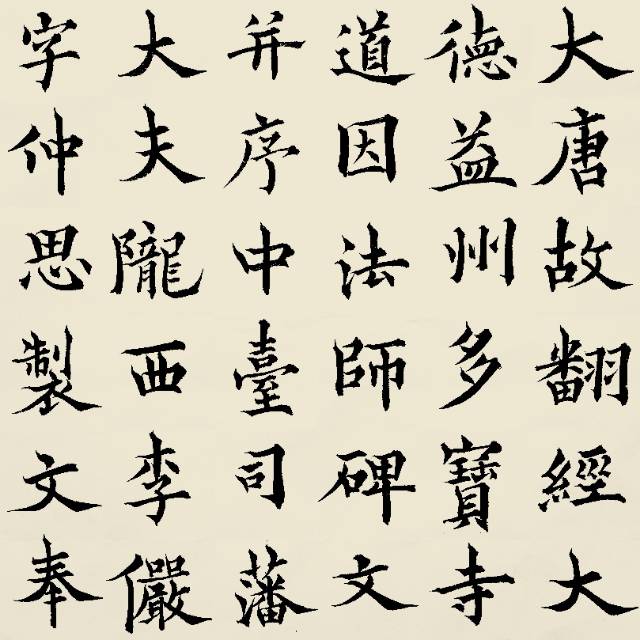 大唐故翻經大
德益州多寶寺
道因法師碑文
并序中臺司藩
大夫隴西李儼
字仲思製文奉